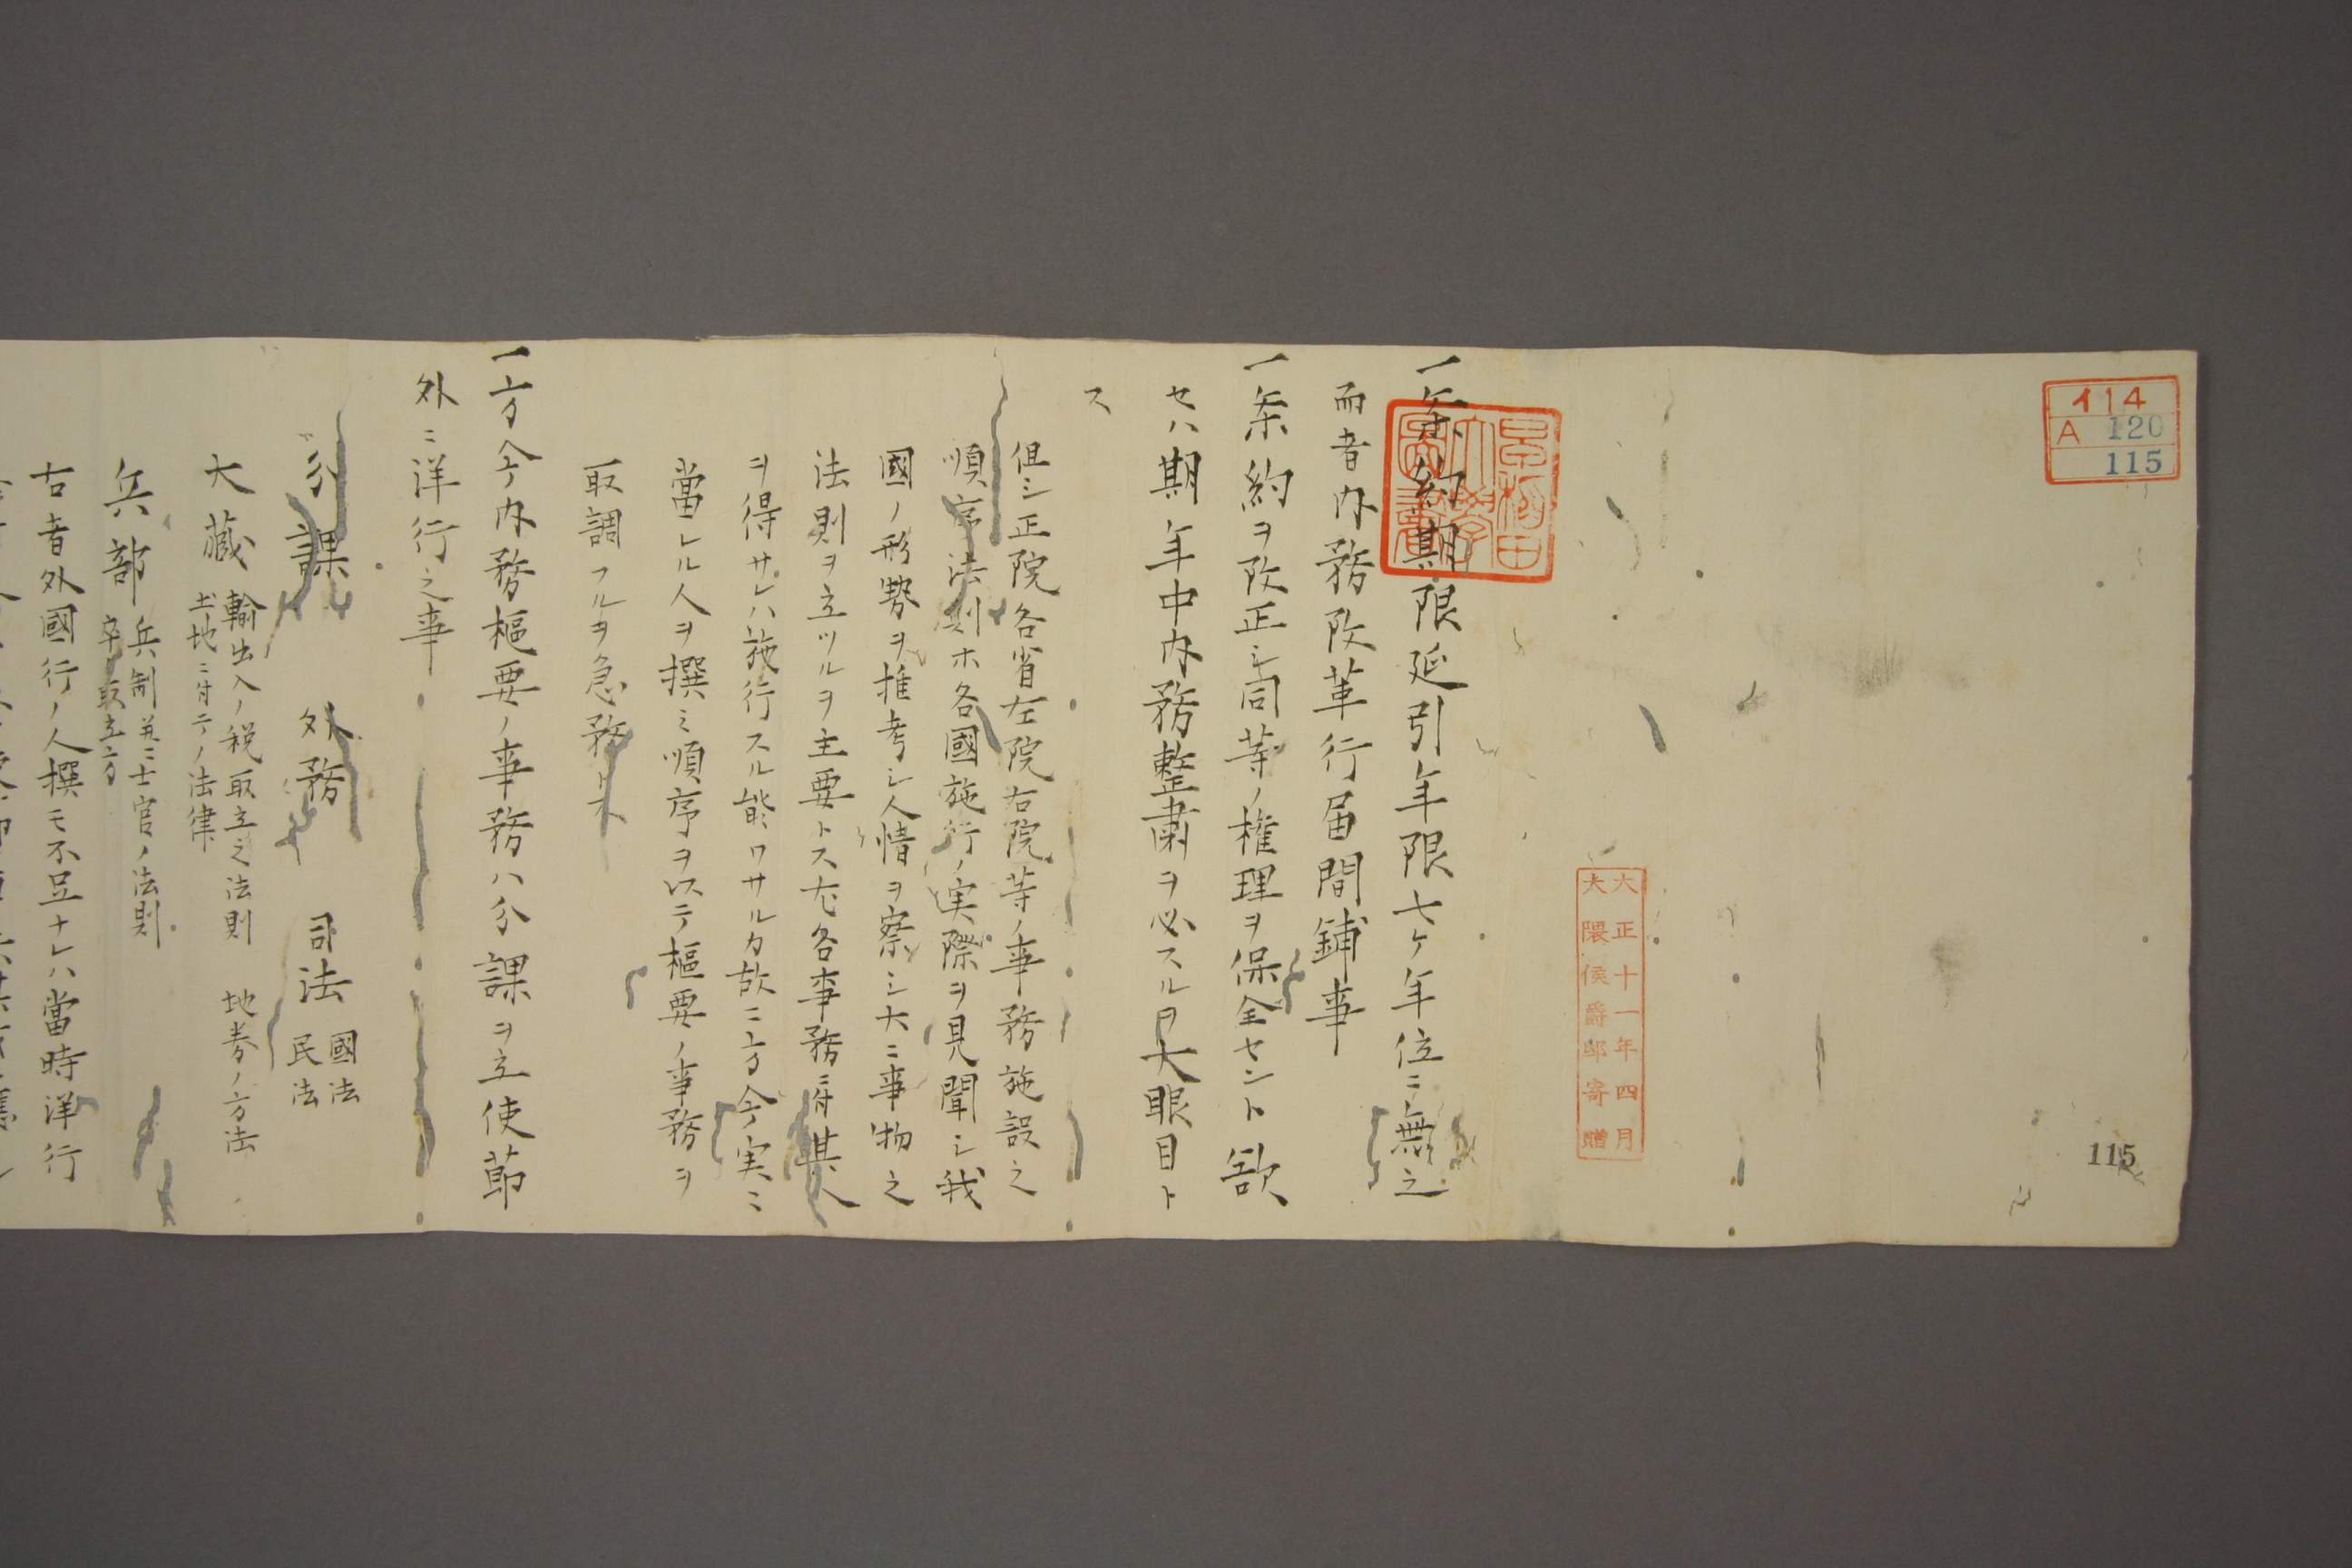 イ14
A 120
115
115
大正十一年四月
大隈侯爵邸寄贈
早稲田
大學
圖書
一条約期限延引年限七ケ年位ニ無之
而者内務改革行届間鋪事
一条約ヲ改正シ同等ノ権理ヲ保全セント欲
セハ期年中内務整粛ヲ必スルヲ大眼目ト
ス
但シ正院各省左院右院等ノ事務施設之
順序法則ホ各國施行ノ実際ヲ見聞シ我
國ノ形勢ヲ推考シ人情ヲ察シ大ニ事物之
法則ヲ立ツルヲ主要トス尤各事務ニ付其人
ヲ得サレハ施行スル能ワサルカ故ニ方今実ニ
當レル人ヲ撰ミ順序ヲ以テ樞要ノ事務ヲ
取調フルヲ急務トス
一方今内務樞要ノ事務ハ分課ヲ立使節
外ニ洋行之事
分課 外務 司法 國法
民法
大藏 輸出入ノ税取立之法則 地券ノ方法
土地ニ付テノ法律
兵部 兵制並ニ士官ノ法則
卒取立方
右者外國行ノ人撰モ不足ナレハ當時洋行